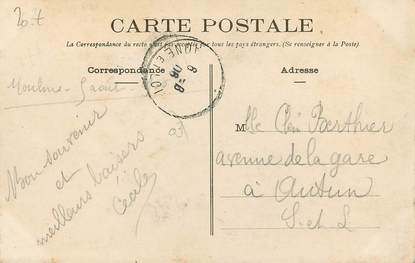 CARTE POSTALE
La Correspondance au recto n'est pas acceptée par tous les pays étrangers. (Se renseigner à la Poste.)
Correspondance
Adresse
Bon souvenir
et
meilleurs baisers
Cécile
M lle Berthier
avenue de la gare
à Autun
S. et L.